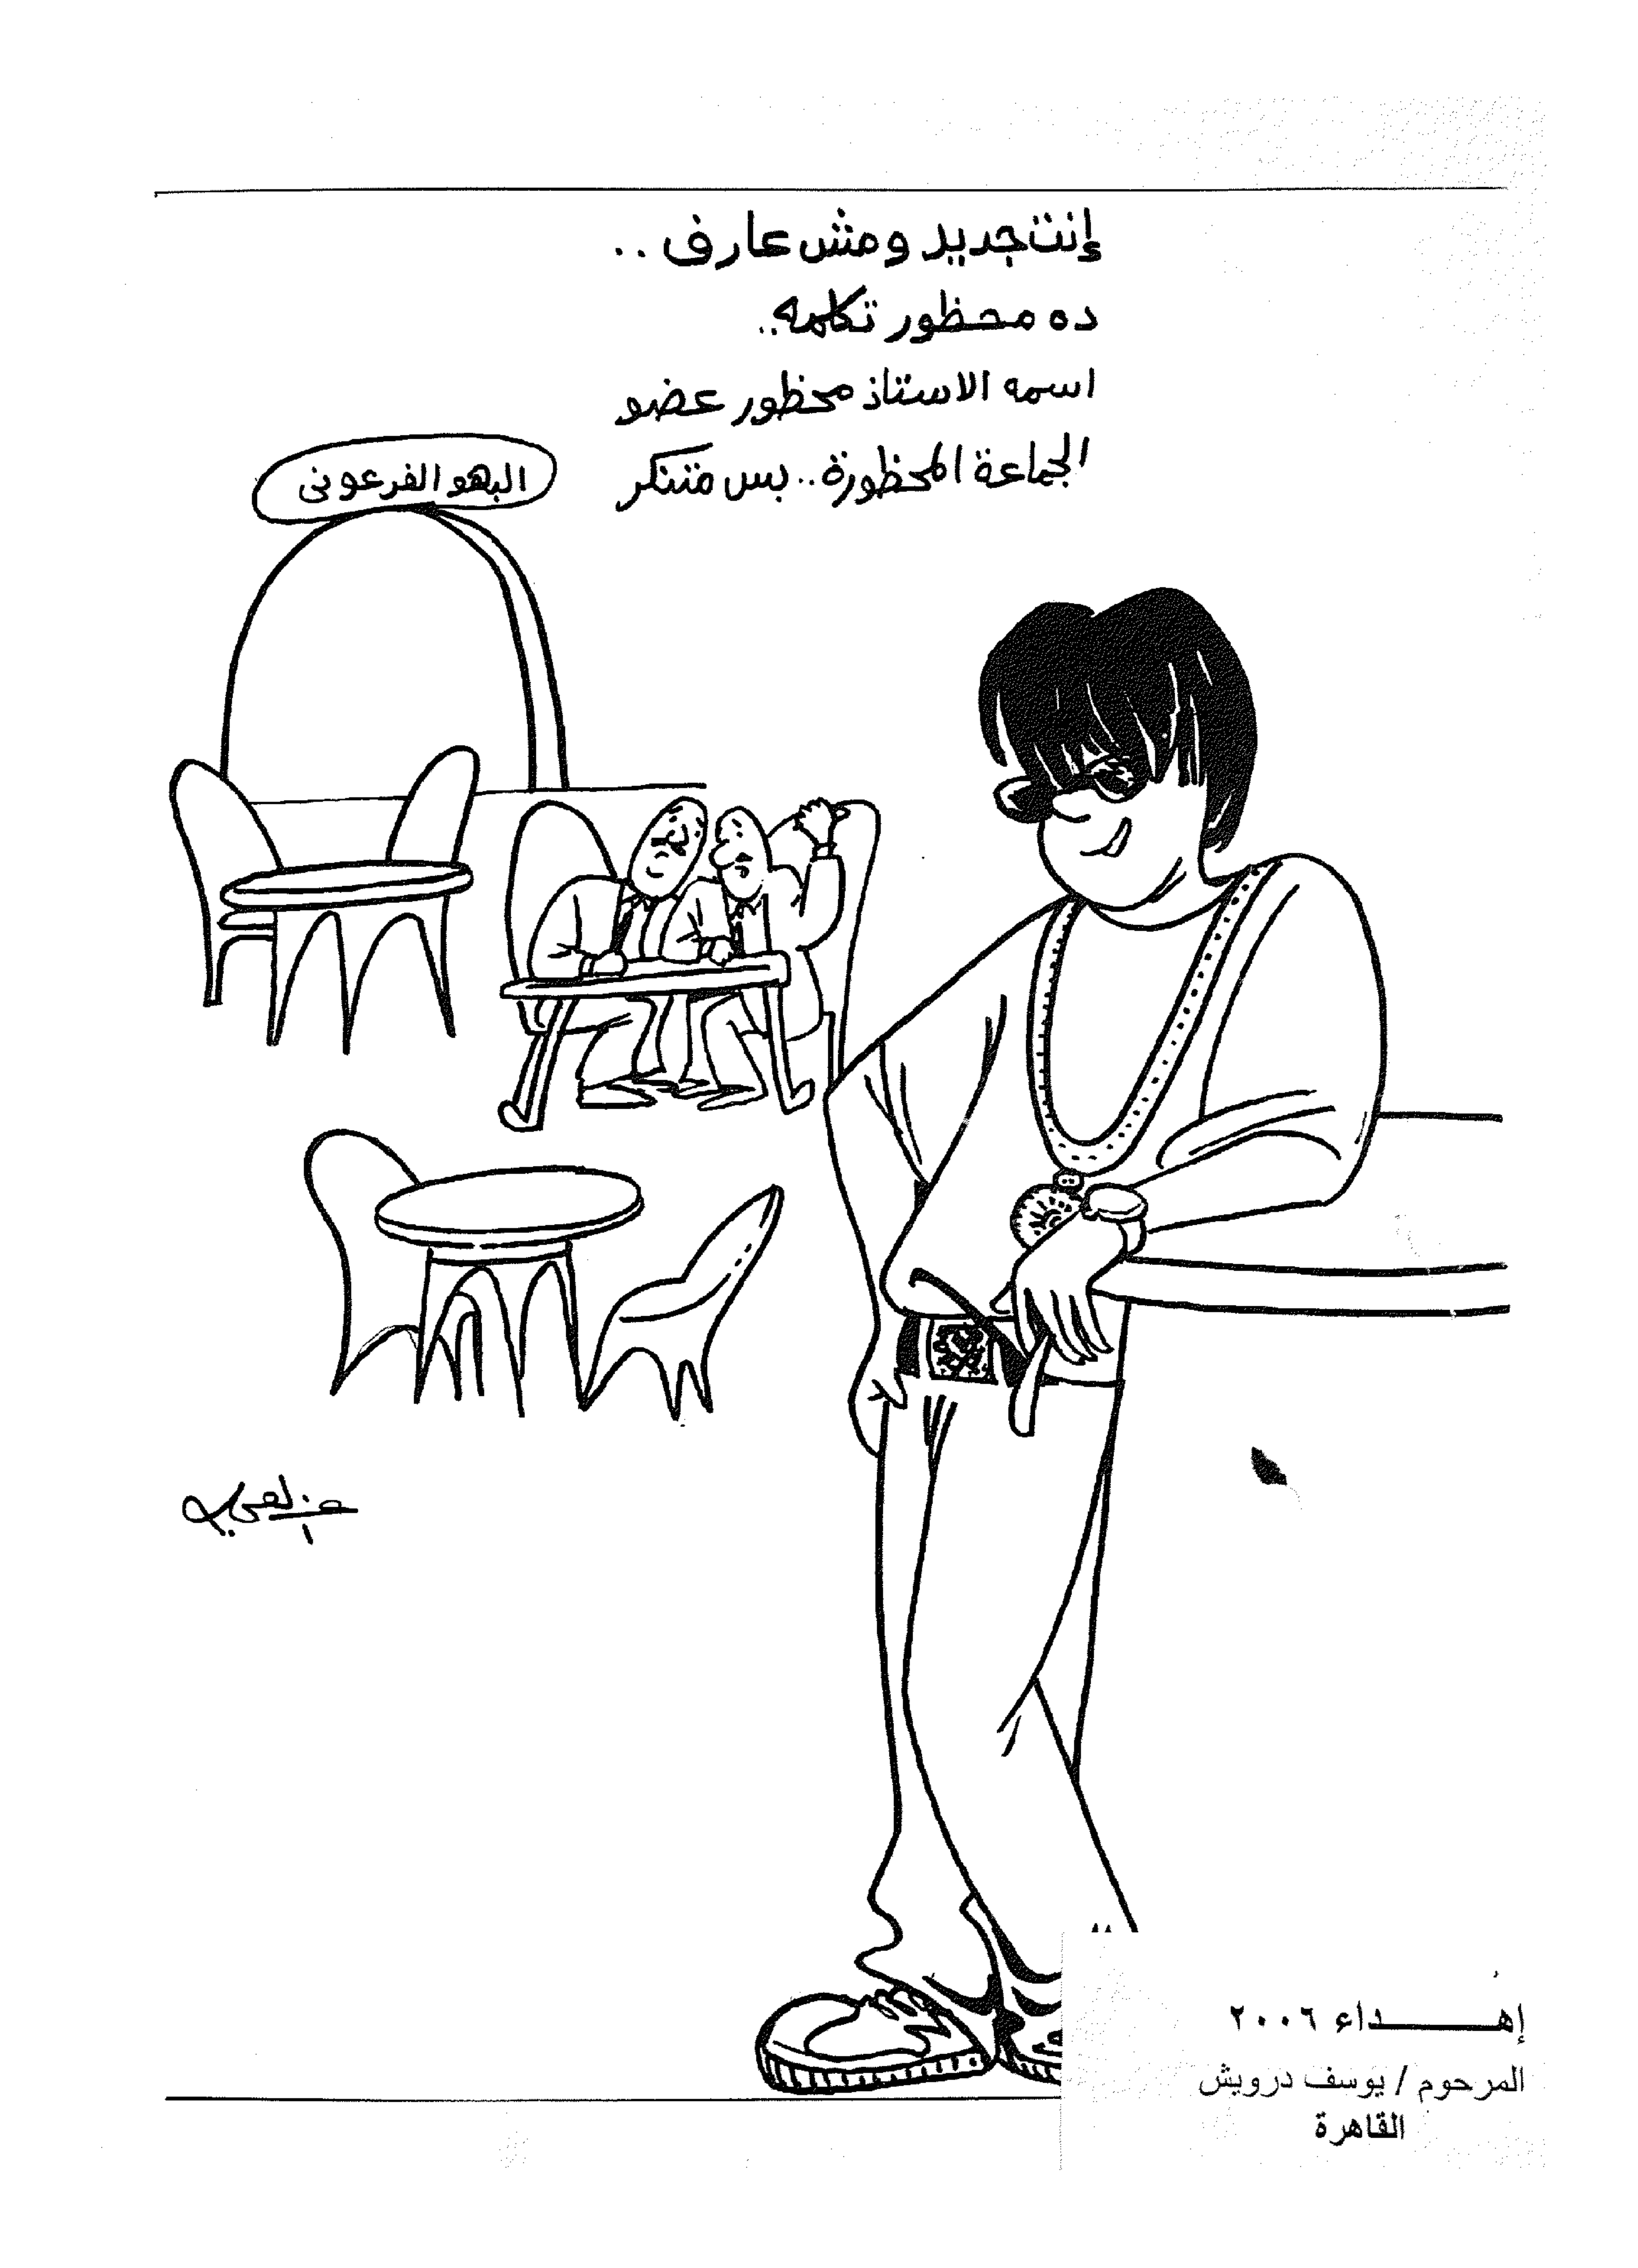 إنت جديد ومش عارف ..
ده محظور تكلمه ..
اسمه الاستاذ محظور عضو
الجماعة المحظورة .. بس متنكر
البهو الفرعونى
إهــــــــداء ٢٠٠٦
المرحوم / يوسف درويش
القاهرة